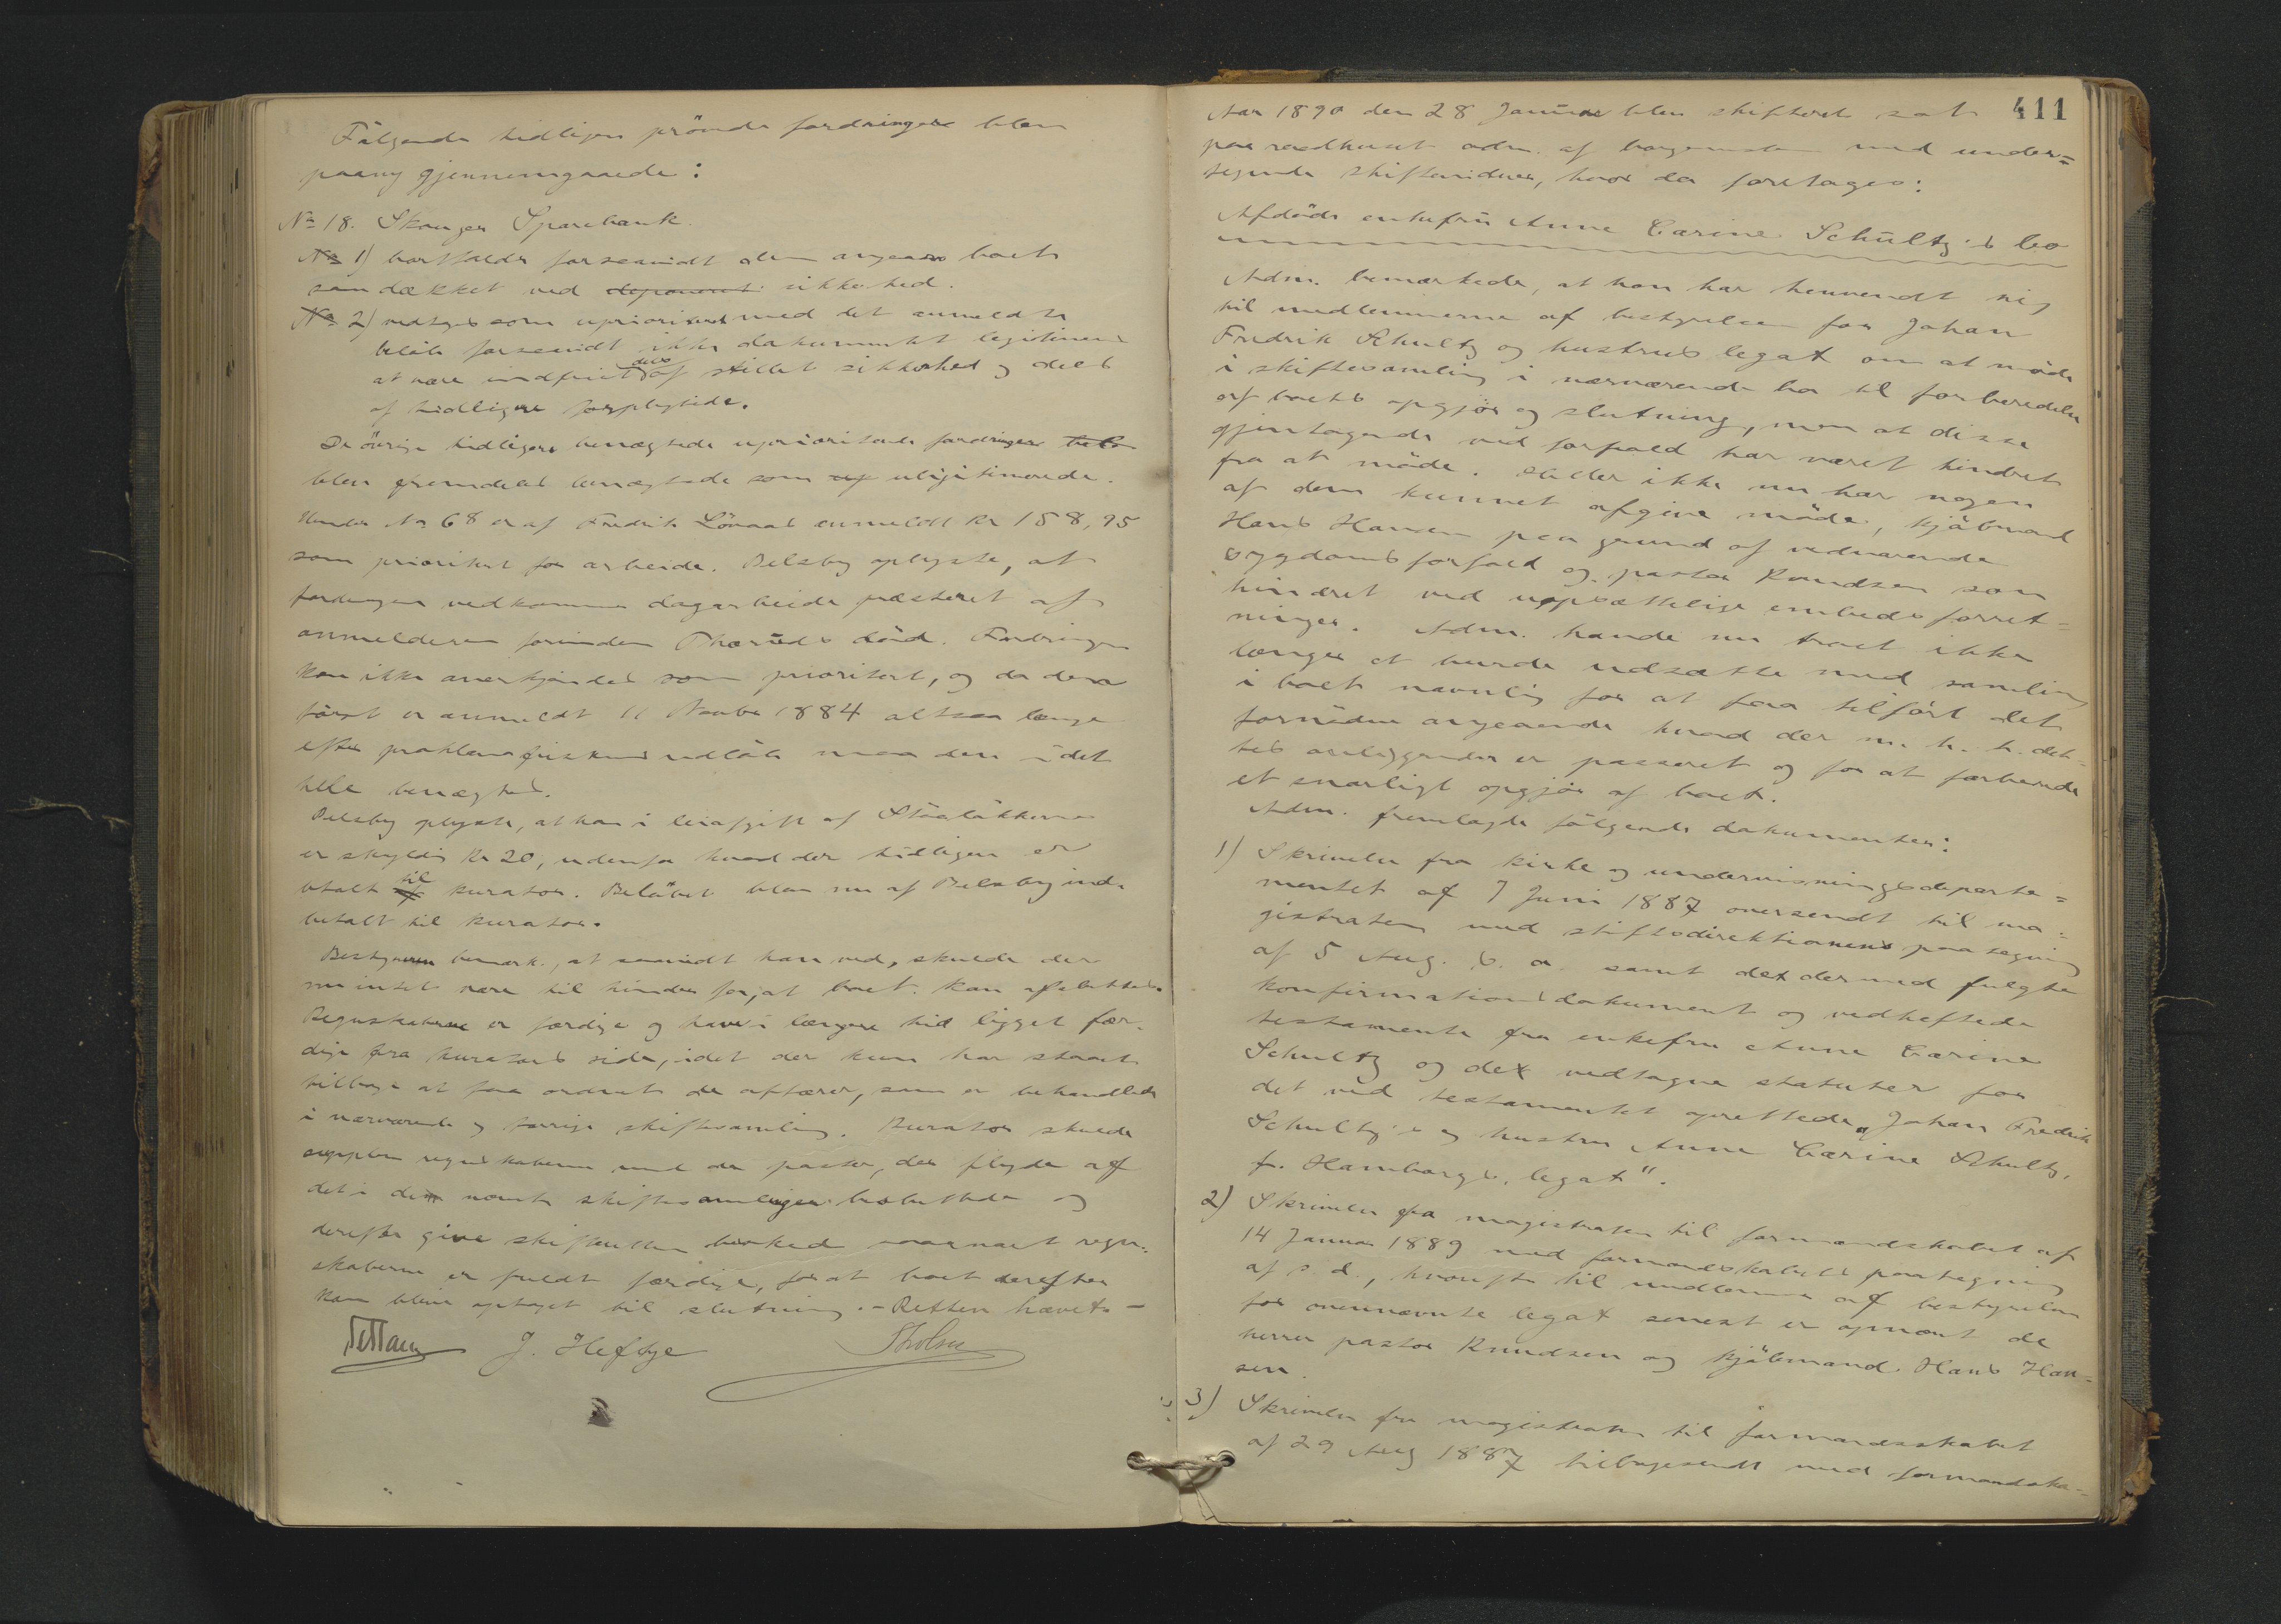 Følgende tidligere prøvede fordringer blev
paany gjennemgaaede:
No 18. Skouger Sparebank.
No 1) bortfalder forsaavidt den angaar boet
som dækket ved deponeret sikkerhed.
No 2) vedtages som uprioriteret med det anmeldte
beløb forsaavidt ikke dokumentet legitimeres
at være indfriet dels af stillet sikkerhed og dels
af tidligere forpligtede.
De øvrige tidligere benægtede uprioriterede fordringer
blev fremdeles benægtede som ulegitimerede.
Under No 68 er af Fredrik Lönaas anmeldt Kr 158,95
som prioritert for arbeide. Belsby oplyste, at
fordringen vedkommer dagarbeide præsteret af
anmelderen forinden Thoruds død. Fordringen
kan ikke anerkjendes som prioritert, og da den
først er anmeldt 11 Novbr 1884 altsaa længe
efter proklamafristens udløb maa den i det
hele benægtes.
Belsby oplyste, at han i leieafgift af
er skyldig Kr 20, udenfor hvad der tidligere er
betalt til kurator. Beløbet blev nu af Belsby ind-
betalt til kurator.
Bestyreren bemærk., at saavidt han ved, skulde der
nu intet være til hinder for, at boet kan afsluttes.
Regnskaberne er færdige og have i længere tid ligget fær-
dige fra kurators side, idet der kun har staaet
tilbage at faa ordnet de affærer, som er behandlede
i nærværende og forrige skiftesamling. Kurator skulde
supplere regnskaberne med de poster, der flyder af
det i de nævnte skiftesamlinger besluttede og
derefter give skifteretten besked saasnart regn-
skaberne er fuldt færdige, for at boet derefter
kan blive optaget til slutning. – Retten hævet –
J. Heftye
411
Aar 1890 den 28 Januar blev skifteret sat
paa raadhuset adm. af borgermester med under=
tegnede skiftevidner, hvor da foretages:
Afdøde enkefru Anne Carine Schultz's bo
Adm. bemærkede, at han har henvendt sig
til medlemmerne af bestyrelsen for Johan
Fredrik Schultz og hustrus legat om at møde
i skiftesamling i nærværende bo til forberedelse
af boets opgjør og slutning, men at disse
gjentagende ved forfald har været hindret
fra at møde. Heller ikke nu har nogen
af dem kunnet afgive møde, kjøbmand
Hans Hansen paa grund af vedvarende
sygdomsforfald og pastor Knudsen som
hindret ved uopsættelige embedsforret=
ninger. Adm. havde nu troet ikke
længer at burde udsætte med samling
i boet navnlig for at faa tilført det
fornødne angaaende hvad der m. h. t. det-
tes anliggender er passeret og for at forberede
et snarligt opgjør af boet.
Adm. fremlagde følgende dokumenter:
1) Skrivelse fra kirke og undervisningsdeparte=
mentet af 7 Juni 1887 oversendt til ma=
gistraten med stiftsdirektionens paategning
af 5 Aug. s. a. samt det dermed fulgte
konfirmationsdokument og vedheftede
testamente fra enkefru Anne Carine
Schultz og det vedtagne statuter for
det ved testamentet oprettede „Johan Fredrik
Schultz's og hustru Anne Carine Schultz,
f. Hamborgs, legat".
2) Skrivelse fra magistraten til formandskabet af
14 Januar 1889 med formandskabets paategning
af s. d., hvorefter til medlemmer af bestyrelsen
for ovennævnte legat senest er opnævnt de
herrer pastor Knudsen og kjøbmand Hans Han=
sen.
3) Skrivelse fra magistraten til formandsskabet
af 29 Aug 1887 tilbagesendt med formandska=